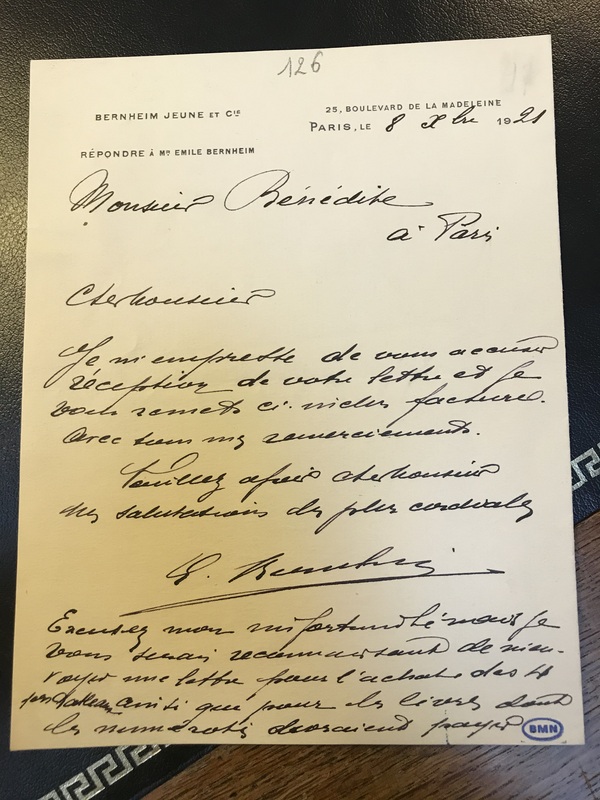 126
BERNHEIM JEUNE ET Cie
25, BOULEVARD DE LA MADELEINE
PARIS, LE 8 Xbre 1921
RÉPONDRE À Mr EMILE BERNHEIM
Monsieur Bénédite
à Paris
Cher Monsieur
Je m'empresse de vous accuser
réception de votre lettre et je
vous remets ci-inclus facture.
avec tous mes remerciements.
Veuillez agréer cher Monsieur
mes salutations les plus cordiales
E. Bernheim
Excusez mon importunité mais je
vous serais reconnaissant de m'en-
voyer une lettre pour l'achat des 4
tableaux ainsi que pour les livres dont
les numéros devraient
BMN